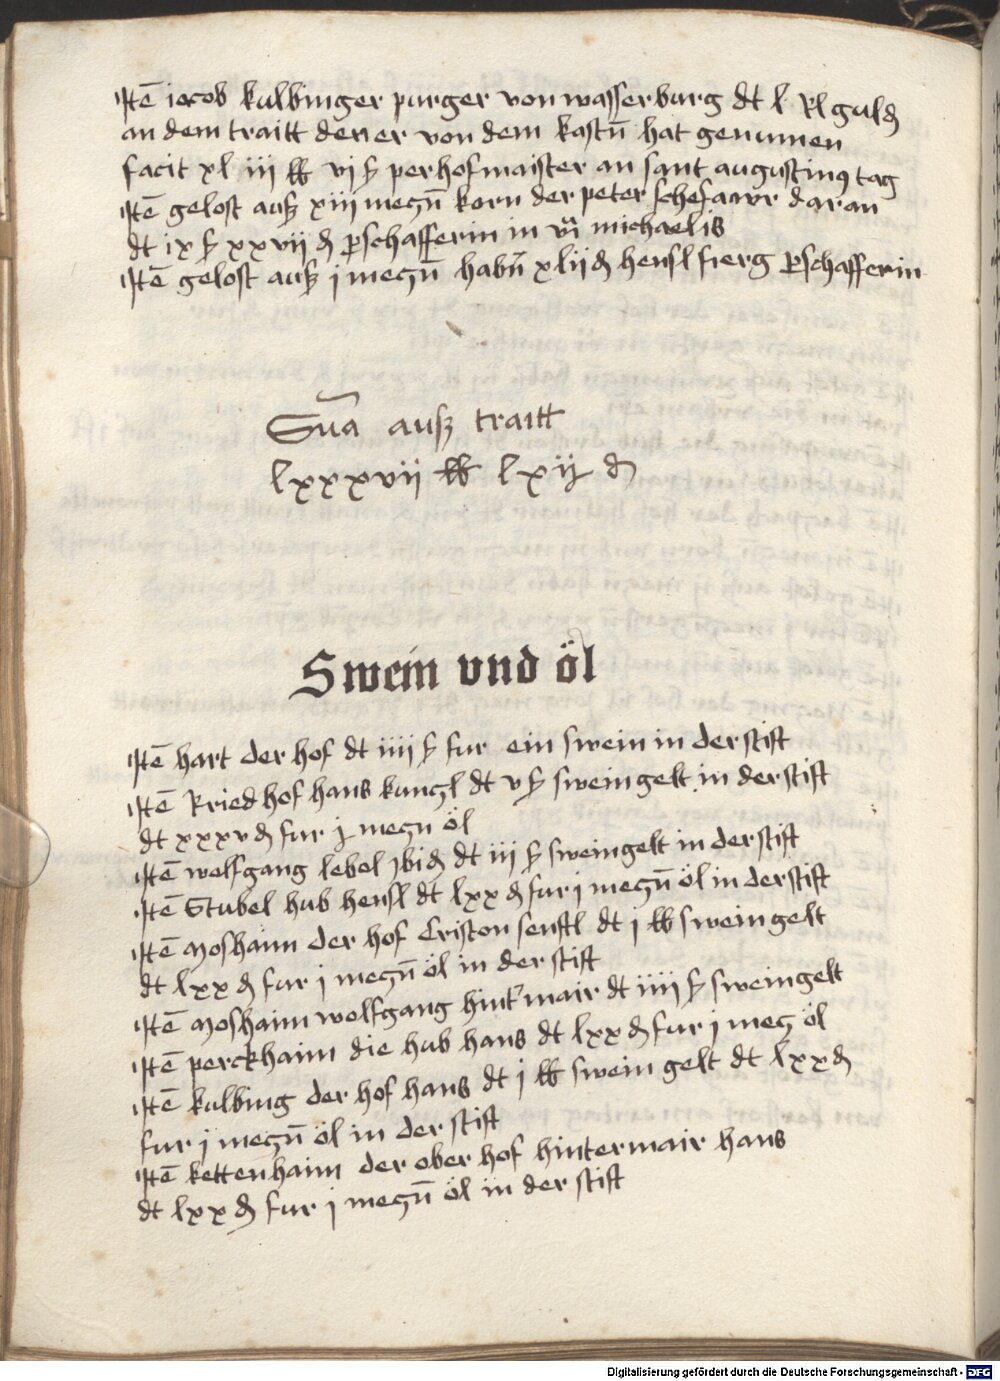 Itē jacob kulbinger purger von wasserburg dt l Rl guldֆ
an dem traitt den er von dem kastn̄ hat genumen
facit xl iij lb vj ß perhofmaister an sant augustinꝰ tag
Itē gelost auß xiij megn̄ korn der peter schefawr daran
dt ix ß xxvij ₰ ꝑschafferin in vi michaelis
Itē gelost auß j megn̄ habn̄ xlij ₰ hensl fierg ꝑschafferin
Sūa auß traitt
lxxxvij lb lxij ₰
Swein vnd öl
Itē hart der hof dt iiij ß fur ein swein in der stift
Itē Riedhof hans kungl dt v ß sweingelt in der stift
dt xxxv ₰ fur j megn öl
Itē wolfgang lebel dt iij ß sweingelt in der stift
Itē Stubel hub hensl dt lxx ₰ fur j megn̄ öl in der stift
Itē moshaim der hof Cristan senftl dt j lb sweingelt
dt lxx ₰ fur j megn̄ öl in der stift
Itē moshaim wolfgang hintmair dt iiij ß sweingelt
Itē perckhaim die hub hans dt lxx ₰ fur j meg öl
Itē kulbing der hof hans dt j lb swein gelt dt lxx ₰
fur j megn̄ öl in der stift
Itē kettenhaim der ober hof hintermair hans
dt lxx ₰ fur j megn̄ öl in der stift
Digitalisierung gefördert durch die Deutsche Forschungsgemeinschaft - DFG